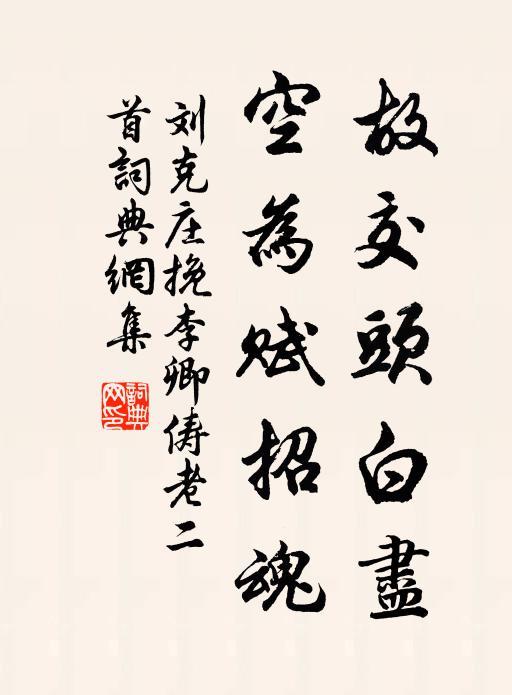 故交頭白盡
空為賦招魂
刘克庄挽李卿俦老二
首詞典網集
詞典
网印